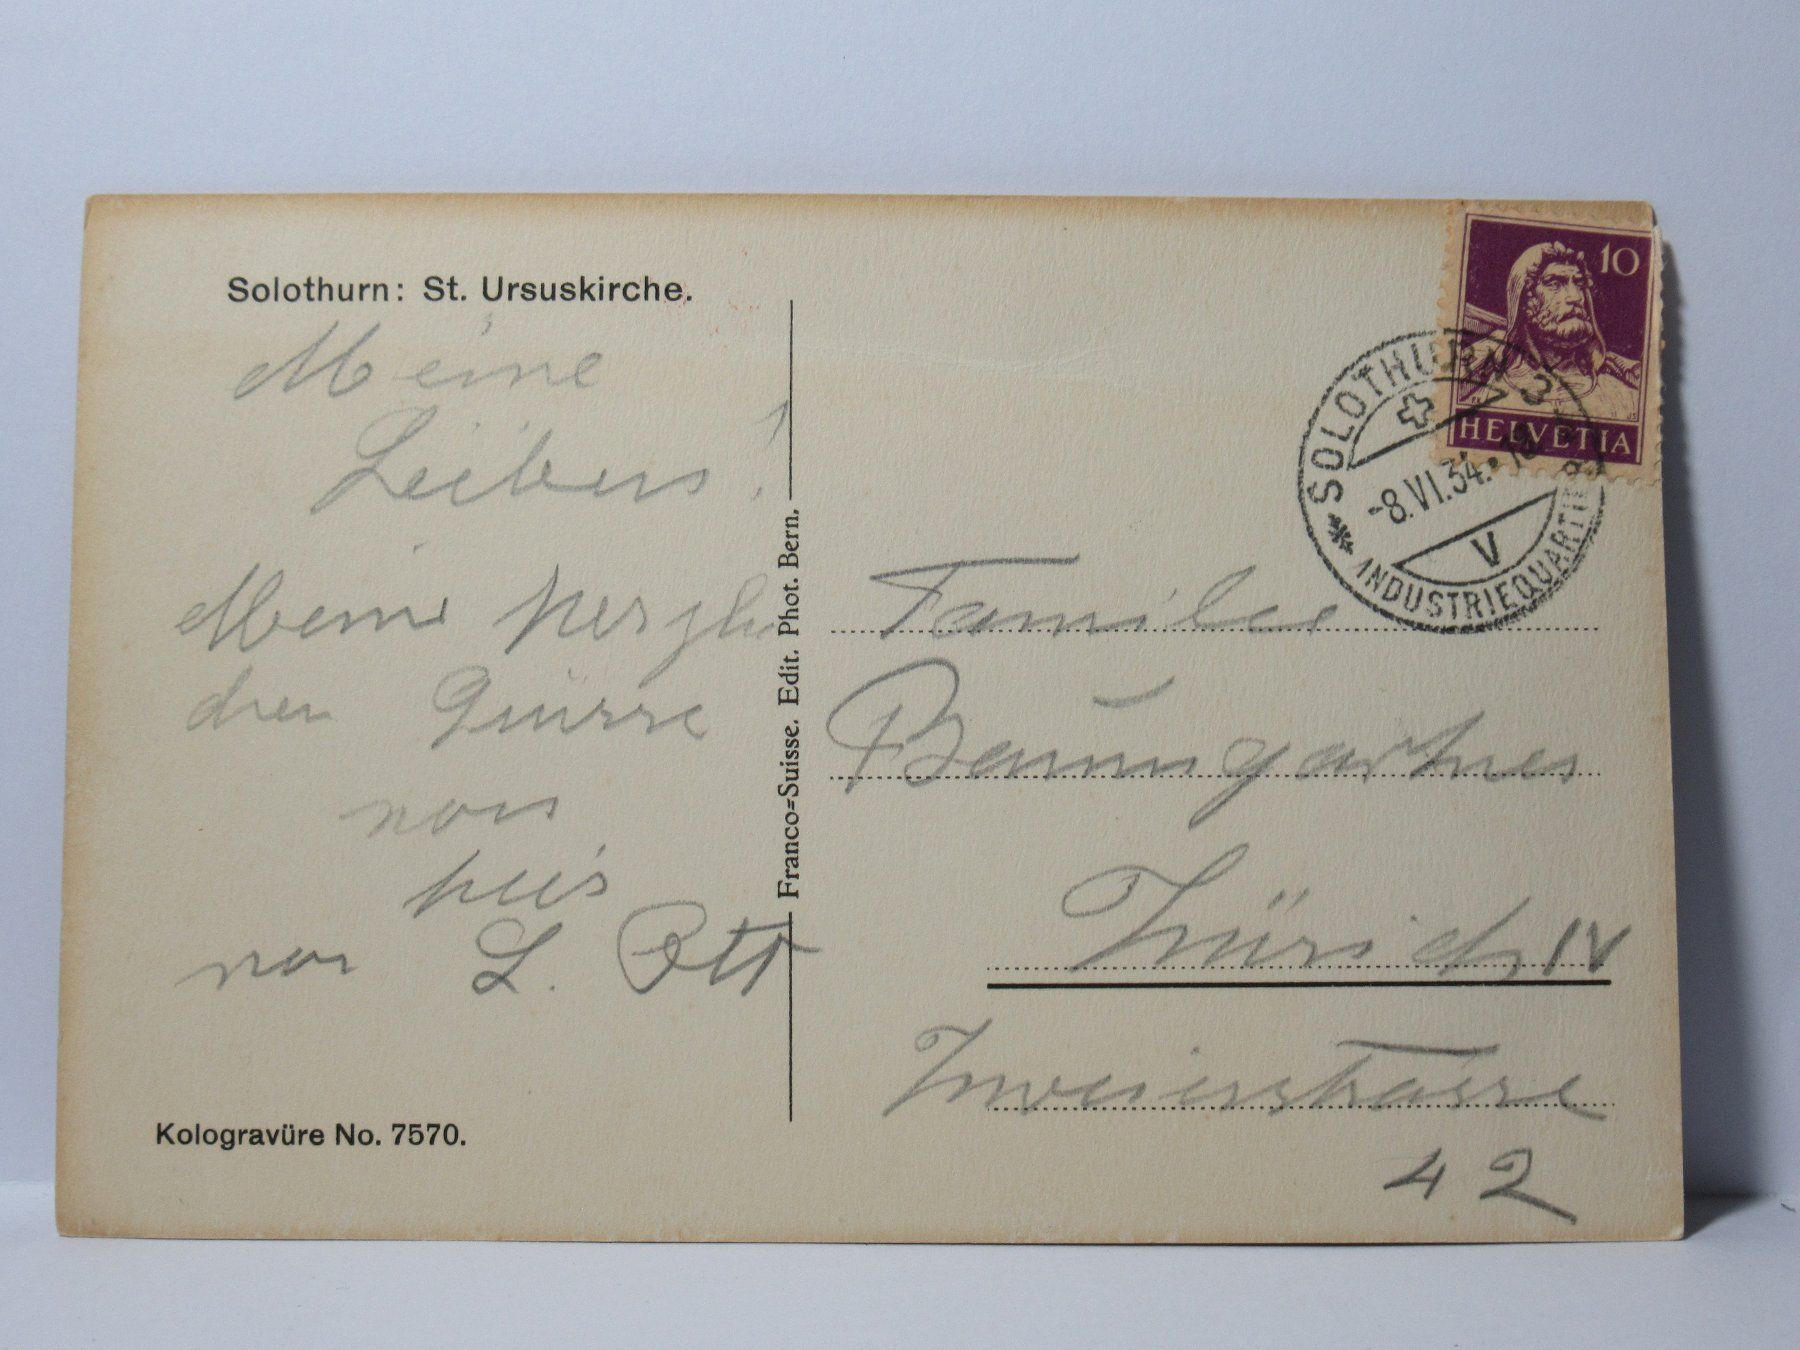 Solothurn: St. Ursuskirche.
Meine
Lieben!
Meine herzli
chen Grüsse
von
hier
von L. Ott
Kologravüre No. 7570.
Franco-Suisse. Edit. Phot. Bern.
10
HELVETIA
SOLOTHURN 3
-8.VI.34.
V
INDUSTRIEQUARTIER
Familie
Baumgartner
Zürich IV
42